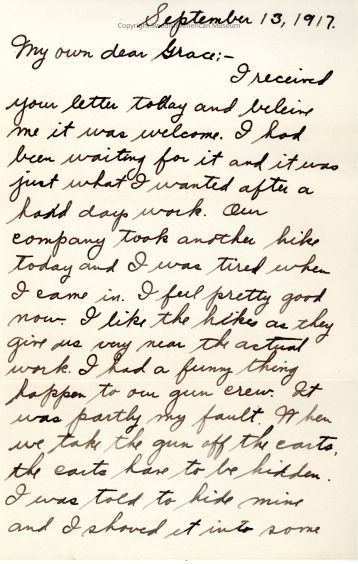 September 13, 1917.
Copyright Swedish American Museum
My own dear Grace:-
I received
your letter today and beleive
me it was welcome. I had
been waiting for it and it was
just what I wanted after a
hard days work. Our
company took another hike
today and I was tired when
I came in. I feel pretty good
now. I like the hikes as they
give us very near the actual
work. I had a funny thing
happen to our gun crew. It
was partly my fault. When
we take the gun off the carts,
the carts have to be hidden.
I was told to hide mine
and I shoved it into some